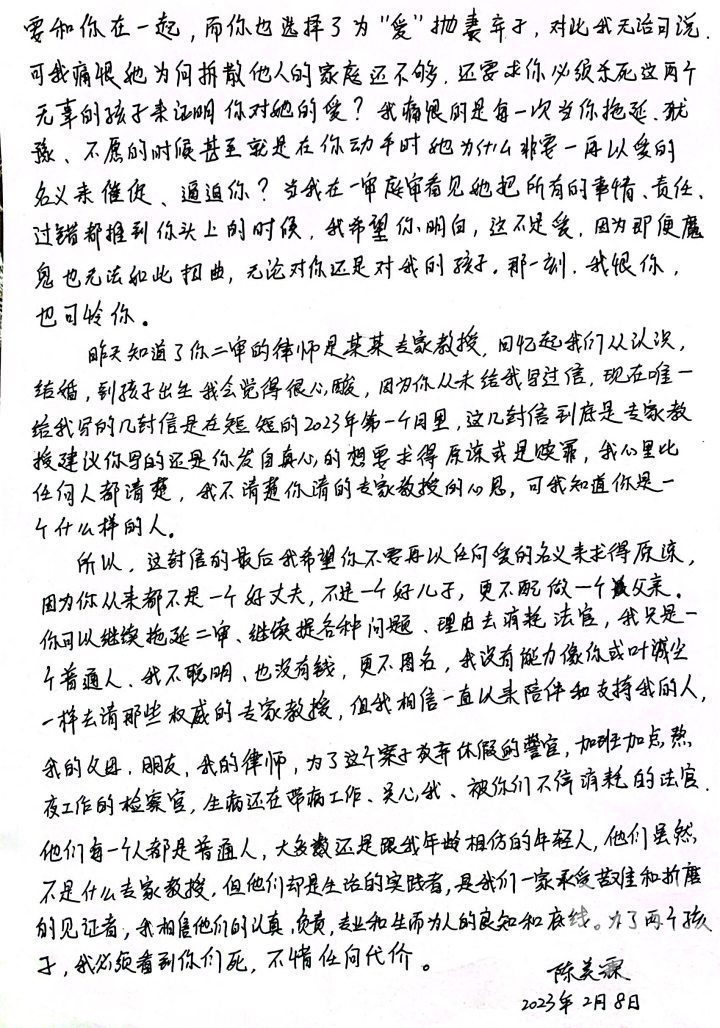 要和你在一起，而你也选择了为“爱”抛妻弃子，对此我无话可说．
可我痛恨她为何拆散他人的家庭还不够．还要求你必须杀死这两个
无辜的孩子来证明你对她的爱？我痛恨的是每一次当你拖延、犹
豫、不愿的时候甚至就是在你动手时她为什么非要一再以爱的
名义来催促、逼迫你？当我在一审庭审看见她把所有的事情、责任、
过错都推到你头上的时候，我希望你明白，这不是爱，因为即便魔
鬼也无法如此扭曲，无论对你还是对我的孩子。那一刻，我恨你，
也可怜你。
昨天知道了你二审的律师是某某专家教授，回忆起我们从认识，
结婚，到孩子出生我会觉得很心酸，因为你从未给我写过信，现在唯一
给我写的几封信是在短短的2023年第一个月里，这几封信到底是专家教
授建议你写的还是你发自真心的想要求得原谅或是赎罪，我心里比
任何人都清楚，我不清楚你请的专家教授的心思，可我知道你是一
个什么样的人。
所以，这封信的最后我希望你不要再以任何爱的名义来求得原谅，
因为你从来都不是一个好丈夫，不是一个好儿子，更不配做一个父亲。
你可以继续拖延二审、继续提各种问题、理由去消耗法官，我只是一
个普通人、我不聪明、也没有钱，更不周名，我没有能力像你或叶诚尘
一样去请那些权威的专家教授，但我相信一直以来陪伴和支持我的人，
我的父母，朋友，我的律师，为了这个案子放弃休假的警官，加班加点熬
夜工作的检察官，生病还在带病工作、关心我、被你们不停消耗的法官．
他们每一个人都是普通人，大多数还是跟我年龄相仿的年轻人，他们虽然
不是什么专家教授，但他们却是生活的实践者，是我们一家承受苦难和折磨
的见证者，我相信他们的认真，负责，专业和生而为人的良知和底线。为了两个孩
子，我必须看到你们死，不惜任何代价。
陈美霖
2023年2月8日